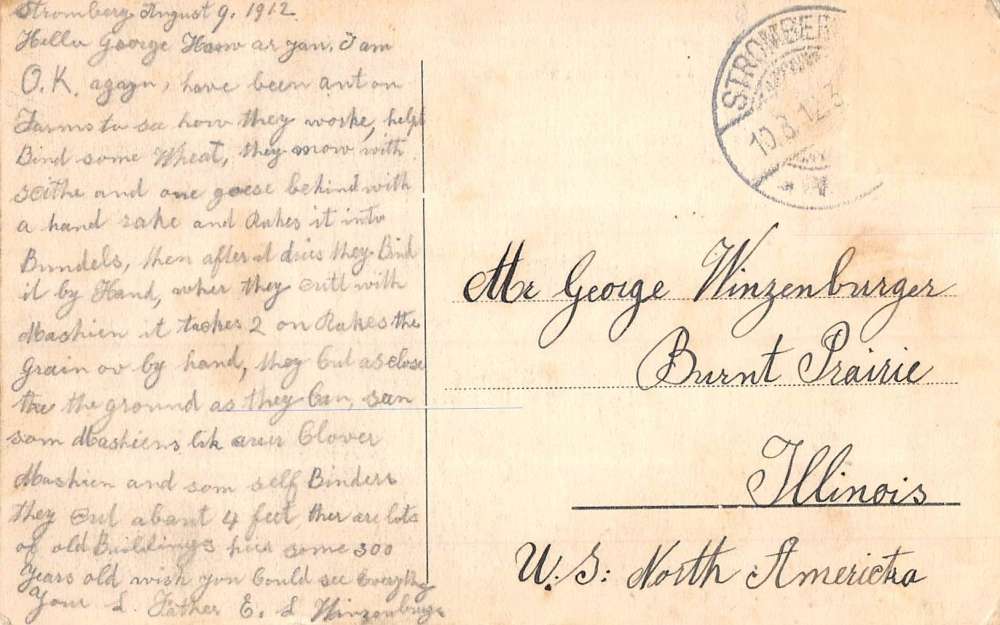 Stromberg August 9. 1912
Hello George How ar you. I am
O.K. agayn, have been aut on
Farms to see how they worke, helpt
Bind some Wheat, they mow with
Scithe and one goese behind with
a hand rake and Rakes it into
Bundels, then after it dries they Bind
it by Hand, wher they Cutt with
Mashien it tackes 2 on Rakes the
Grain ov by hand, they Cut as close
the the ground as they Can, seen
som Mashiens lik Clover
Mashien and som self Binders
they Cut abaut 4 feet ther are lots
of old Buildings hier some 300
Years old wish you Could see Everything
Your L. Father E. L Winzenburger
STROMBERG
10.8.12.3
Mr George Winzenburger
Burnt Prairie
Illinois
U.S: North Americka